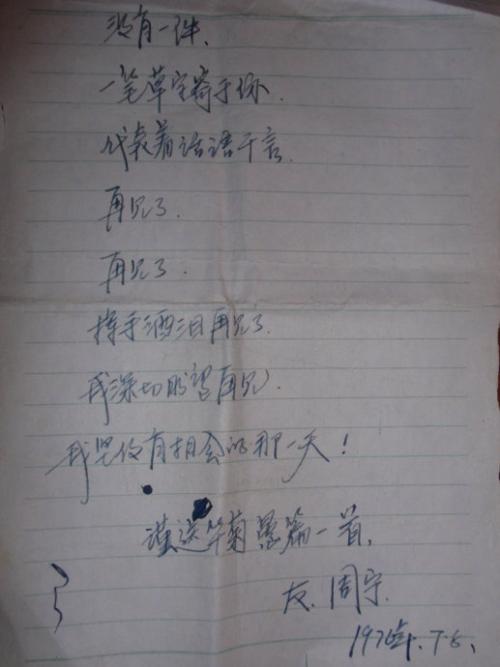 没有一件、
一笔草字寄于你.
代表着话语千言.
再见了.
再见了.
挥手洒泪再见了.
我深切盼望再见.
我思仅有相会的那一天!
谨送华菊愚篇一首,
友.周宁.
1976年.7.6.